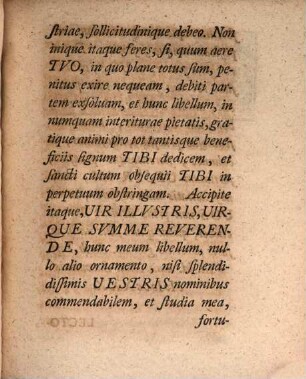 striae, sollicitudinique debeo. Non
inique itaque feres, si, quum aere
TVO, in quo plane totus sum, pe-
nitus exire nequeam, debiti par-
tem exsoluam, et hunc libellum, in
numquam interiturae pietatis, gra-
tique animi pro tot tantisque bene-
ficiis signum TIBI dedicem, et
sancti cultum obsequii TIBI in
perpetuum obstringam. Accipite
itaque, UIR ILLVSTRIS, UIR-
QUE SVMME REVEREN-
DE, hunc meum libellum, nul-
lo alio ornamento, nisi splendi-
dissimis UESTRIS nominibus
commendabilem, et studia mea,
fortu-